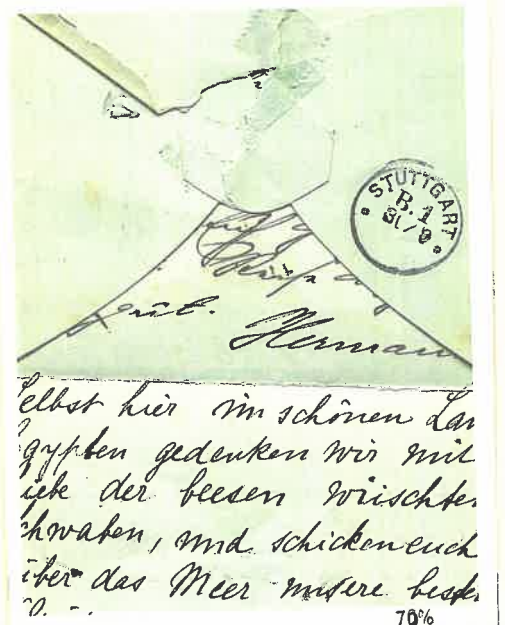 STUTTGART
B. 1
31/8
Herman
elbst hier im schönen Lan
gypten gedenken wir mit
iebe der beesen wüischten
chwaben, und schicken euch
über das Meer unsere besten
70%